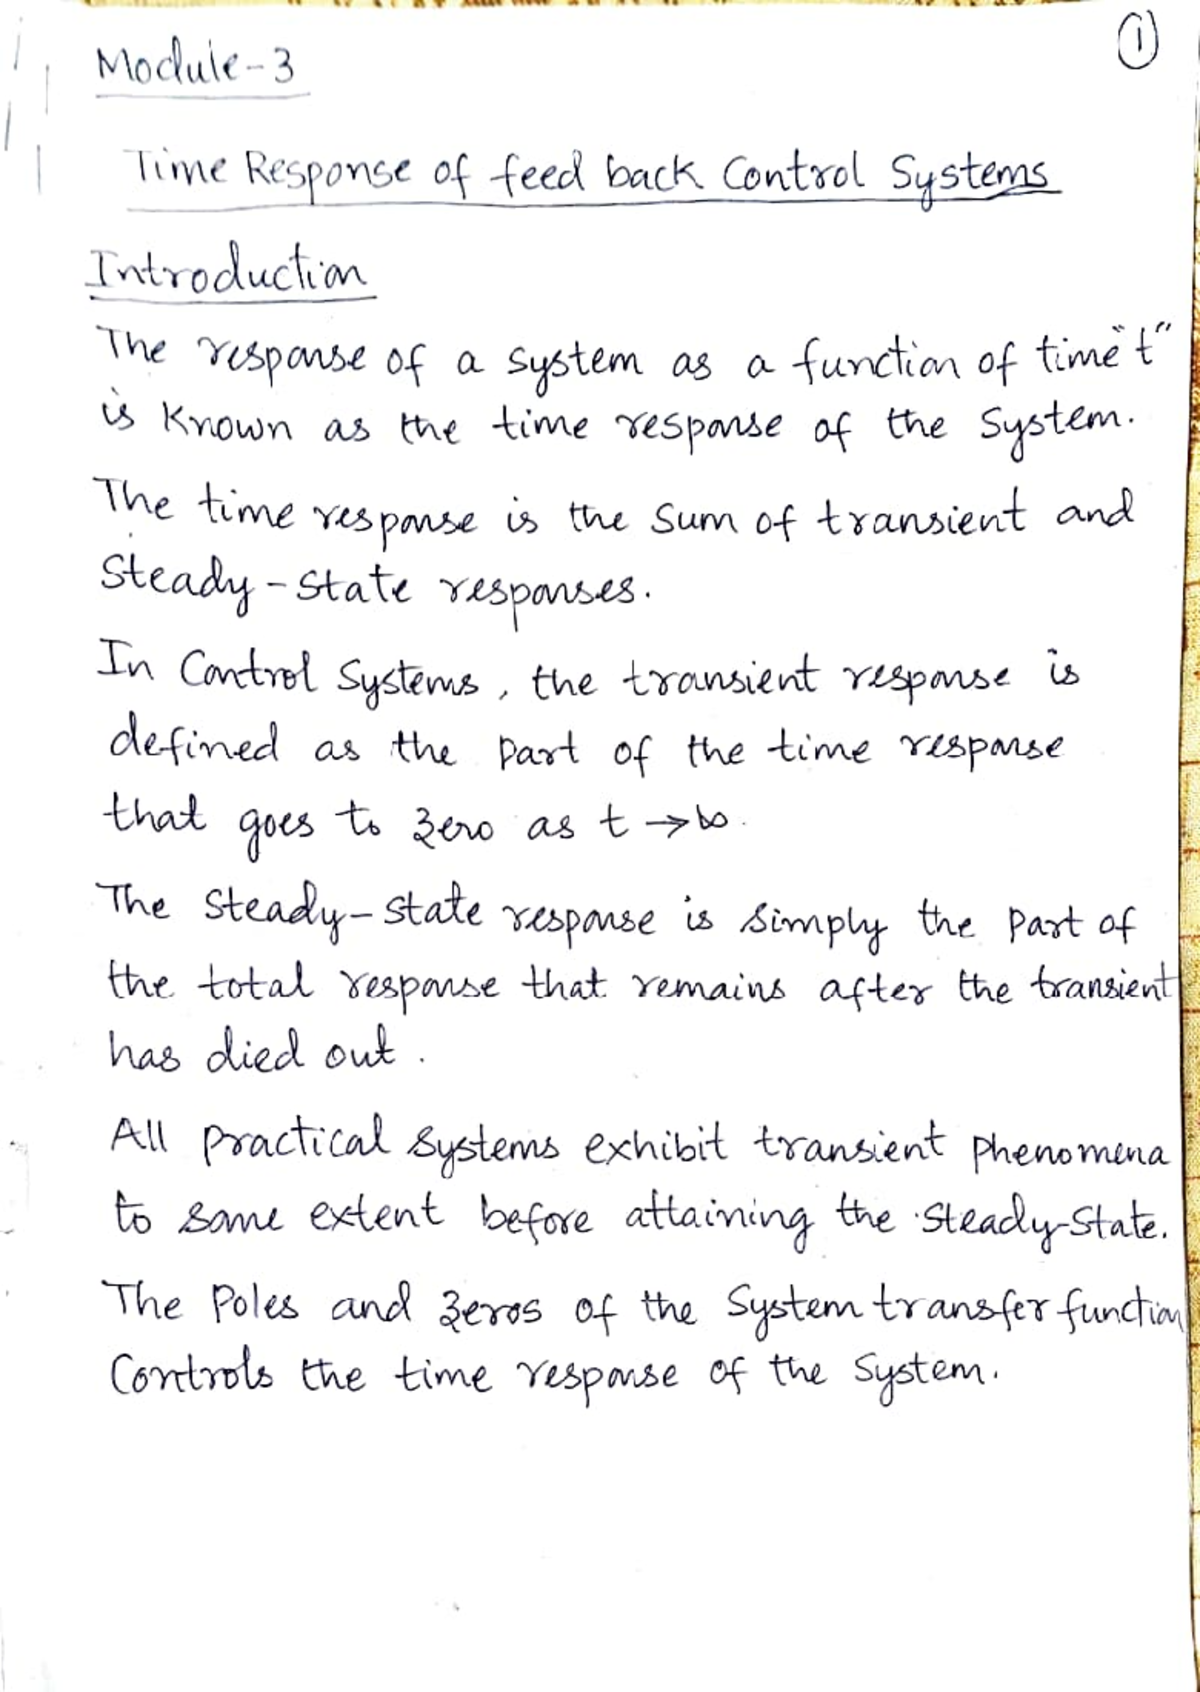 1
Module-3
Time Response of feed back Control Systems
Introduction
The response of a system as a function of time "t"
is known as the time response of the System.
The time response is the sum of transient and
Steady-State responses.
In Control Systems, the transient response is
defined as the part of the time response
that goes to zero as t → ∞.
The Steady-State response is simply the part of
the total response that remains after the transient
has died out.
All practical systems exhibit transient phenomena
to some extent before attaining the Steady-State.
The Poles and zeros of the System transfer function
Controls the time response of the System.